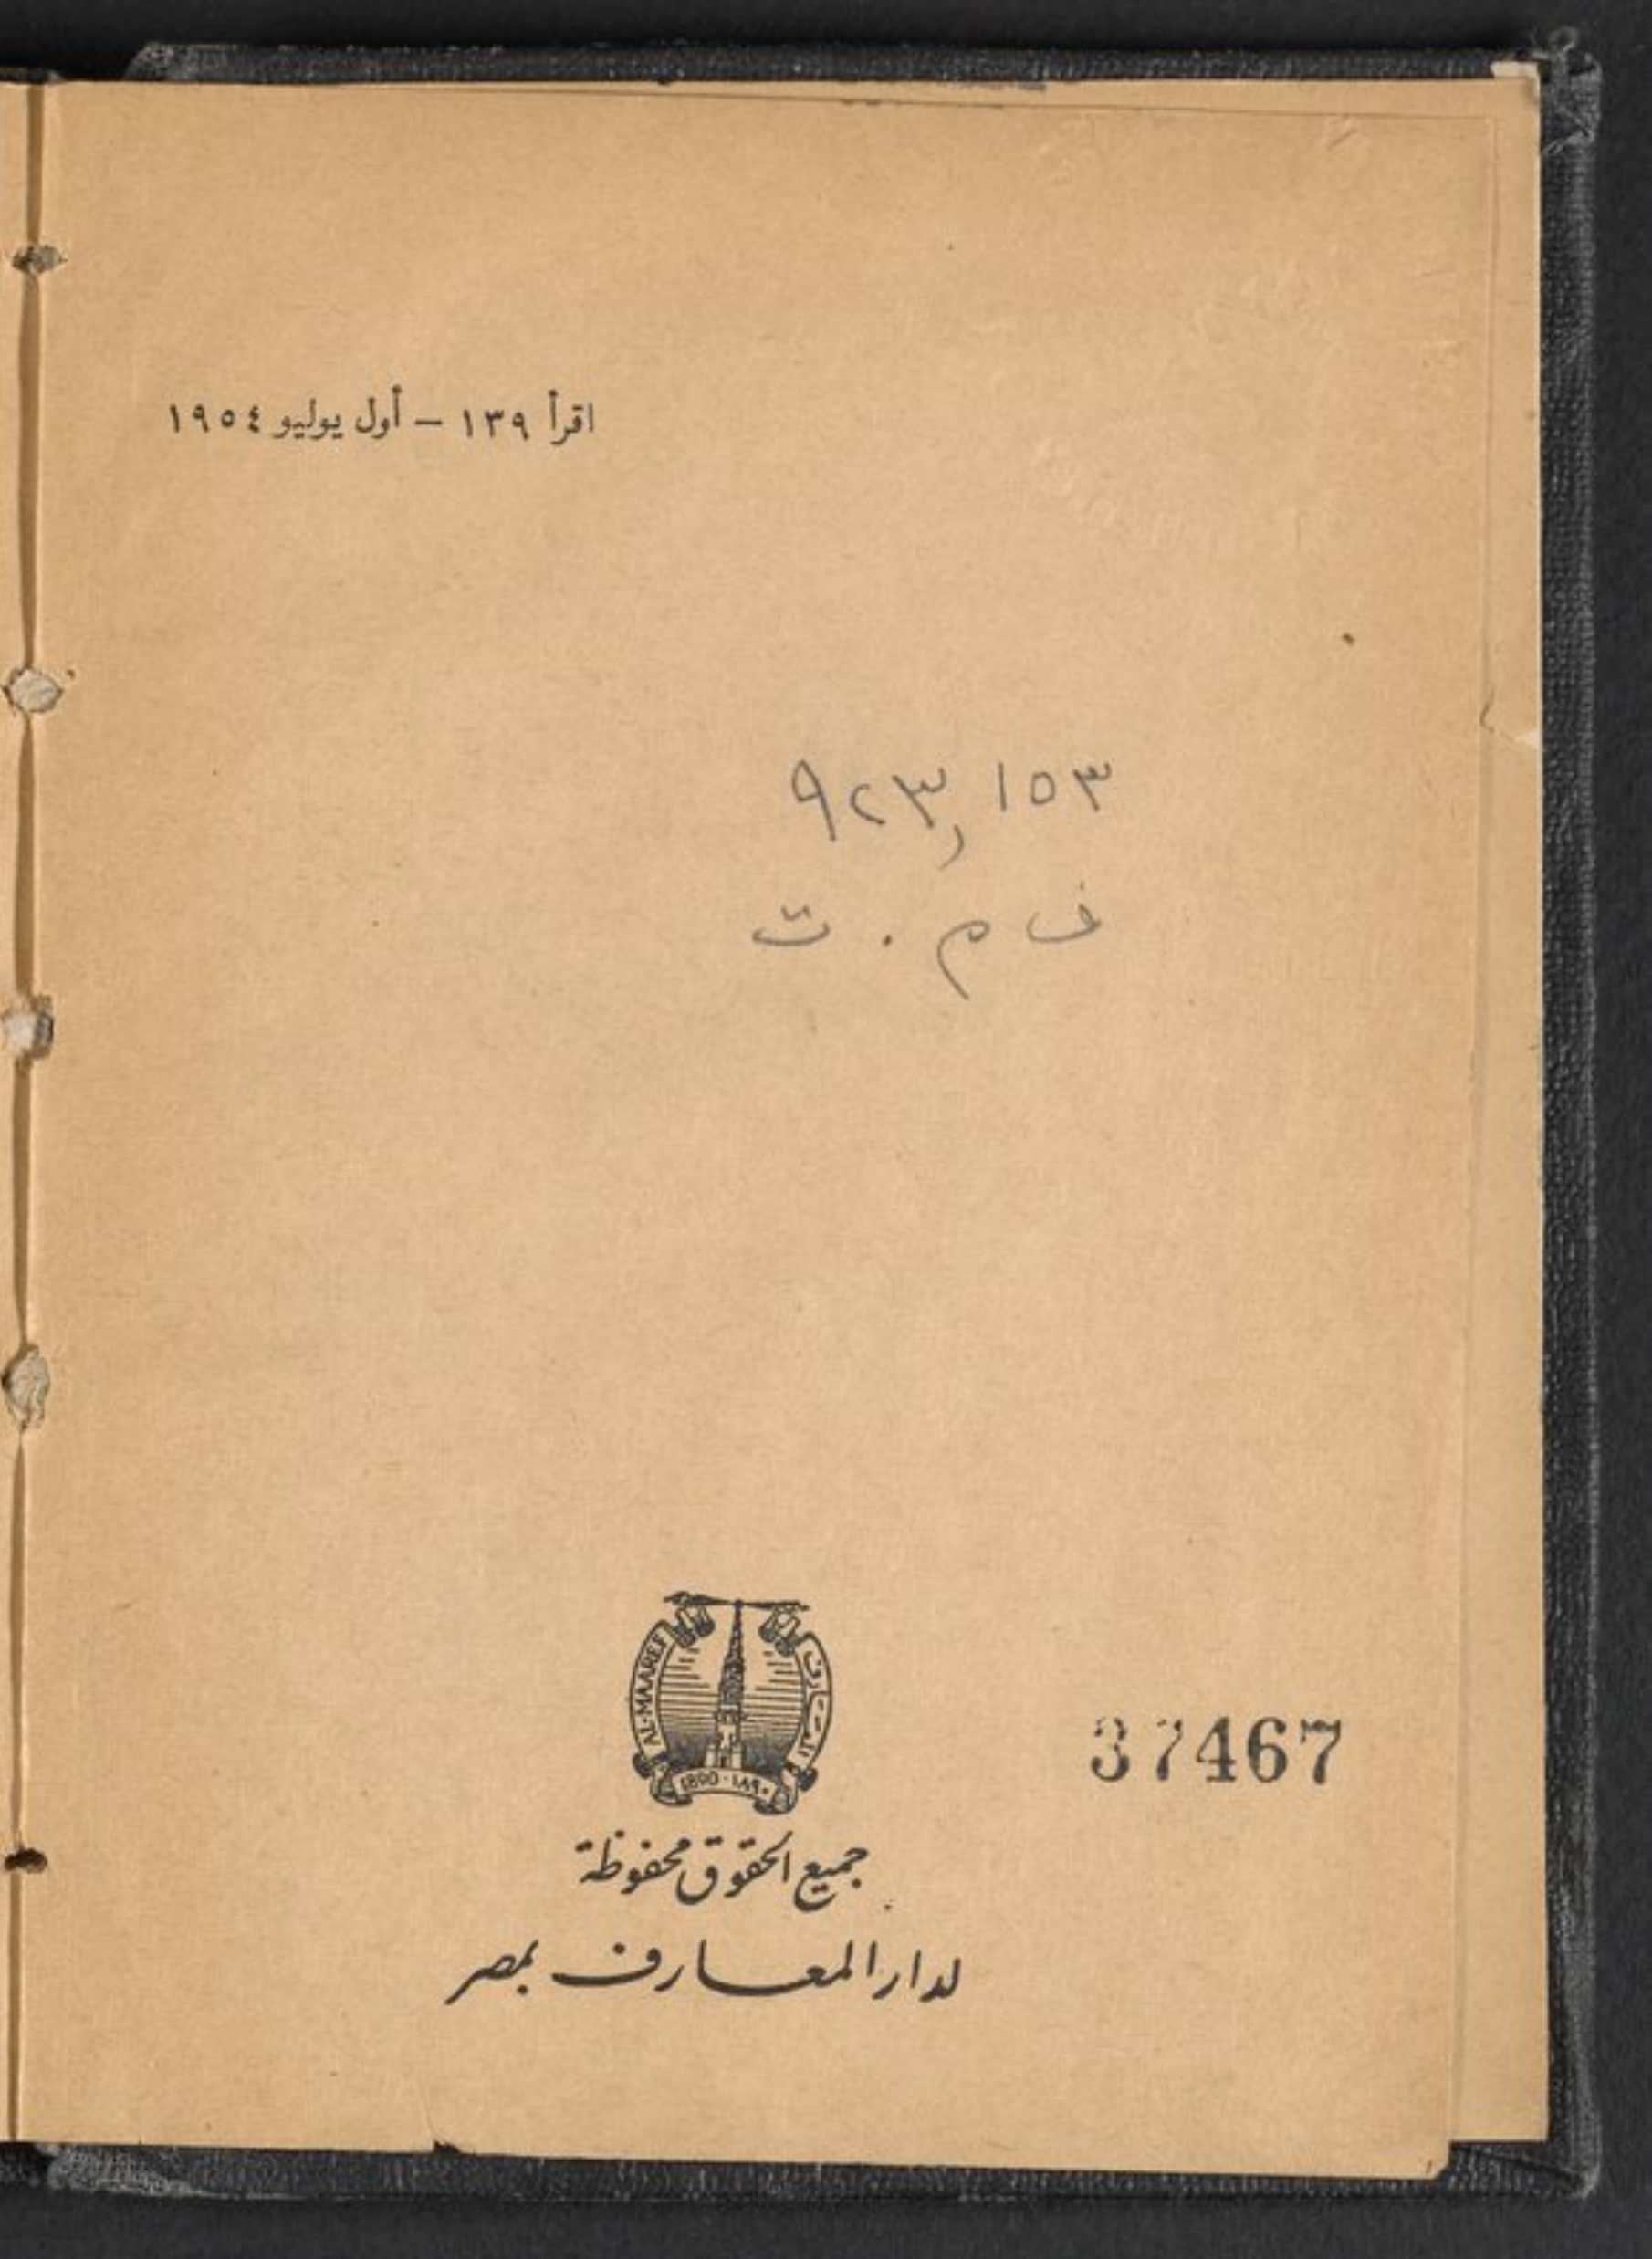 اقرأ ١٣٩ – أول يوليو ١٩٥٤
٩٢٣,١٥٣
ف م . ت
AL-MAAREF
المعارف
1890 · ١٨٩٠
37467
جميع الحقوق محفوظة
لدار المعارف بمصر